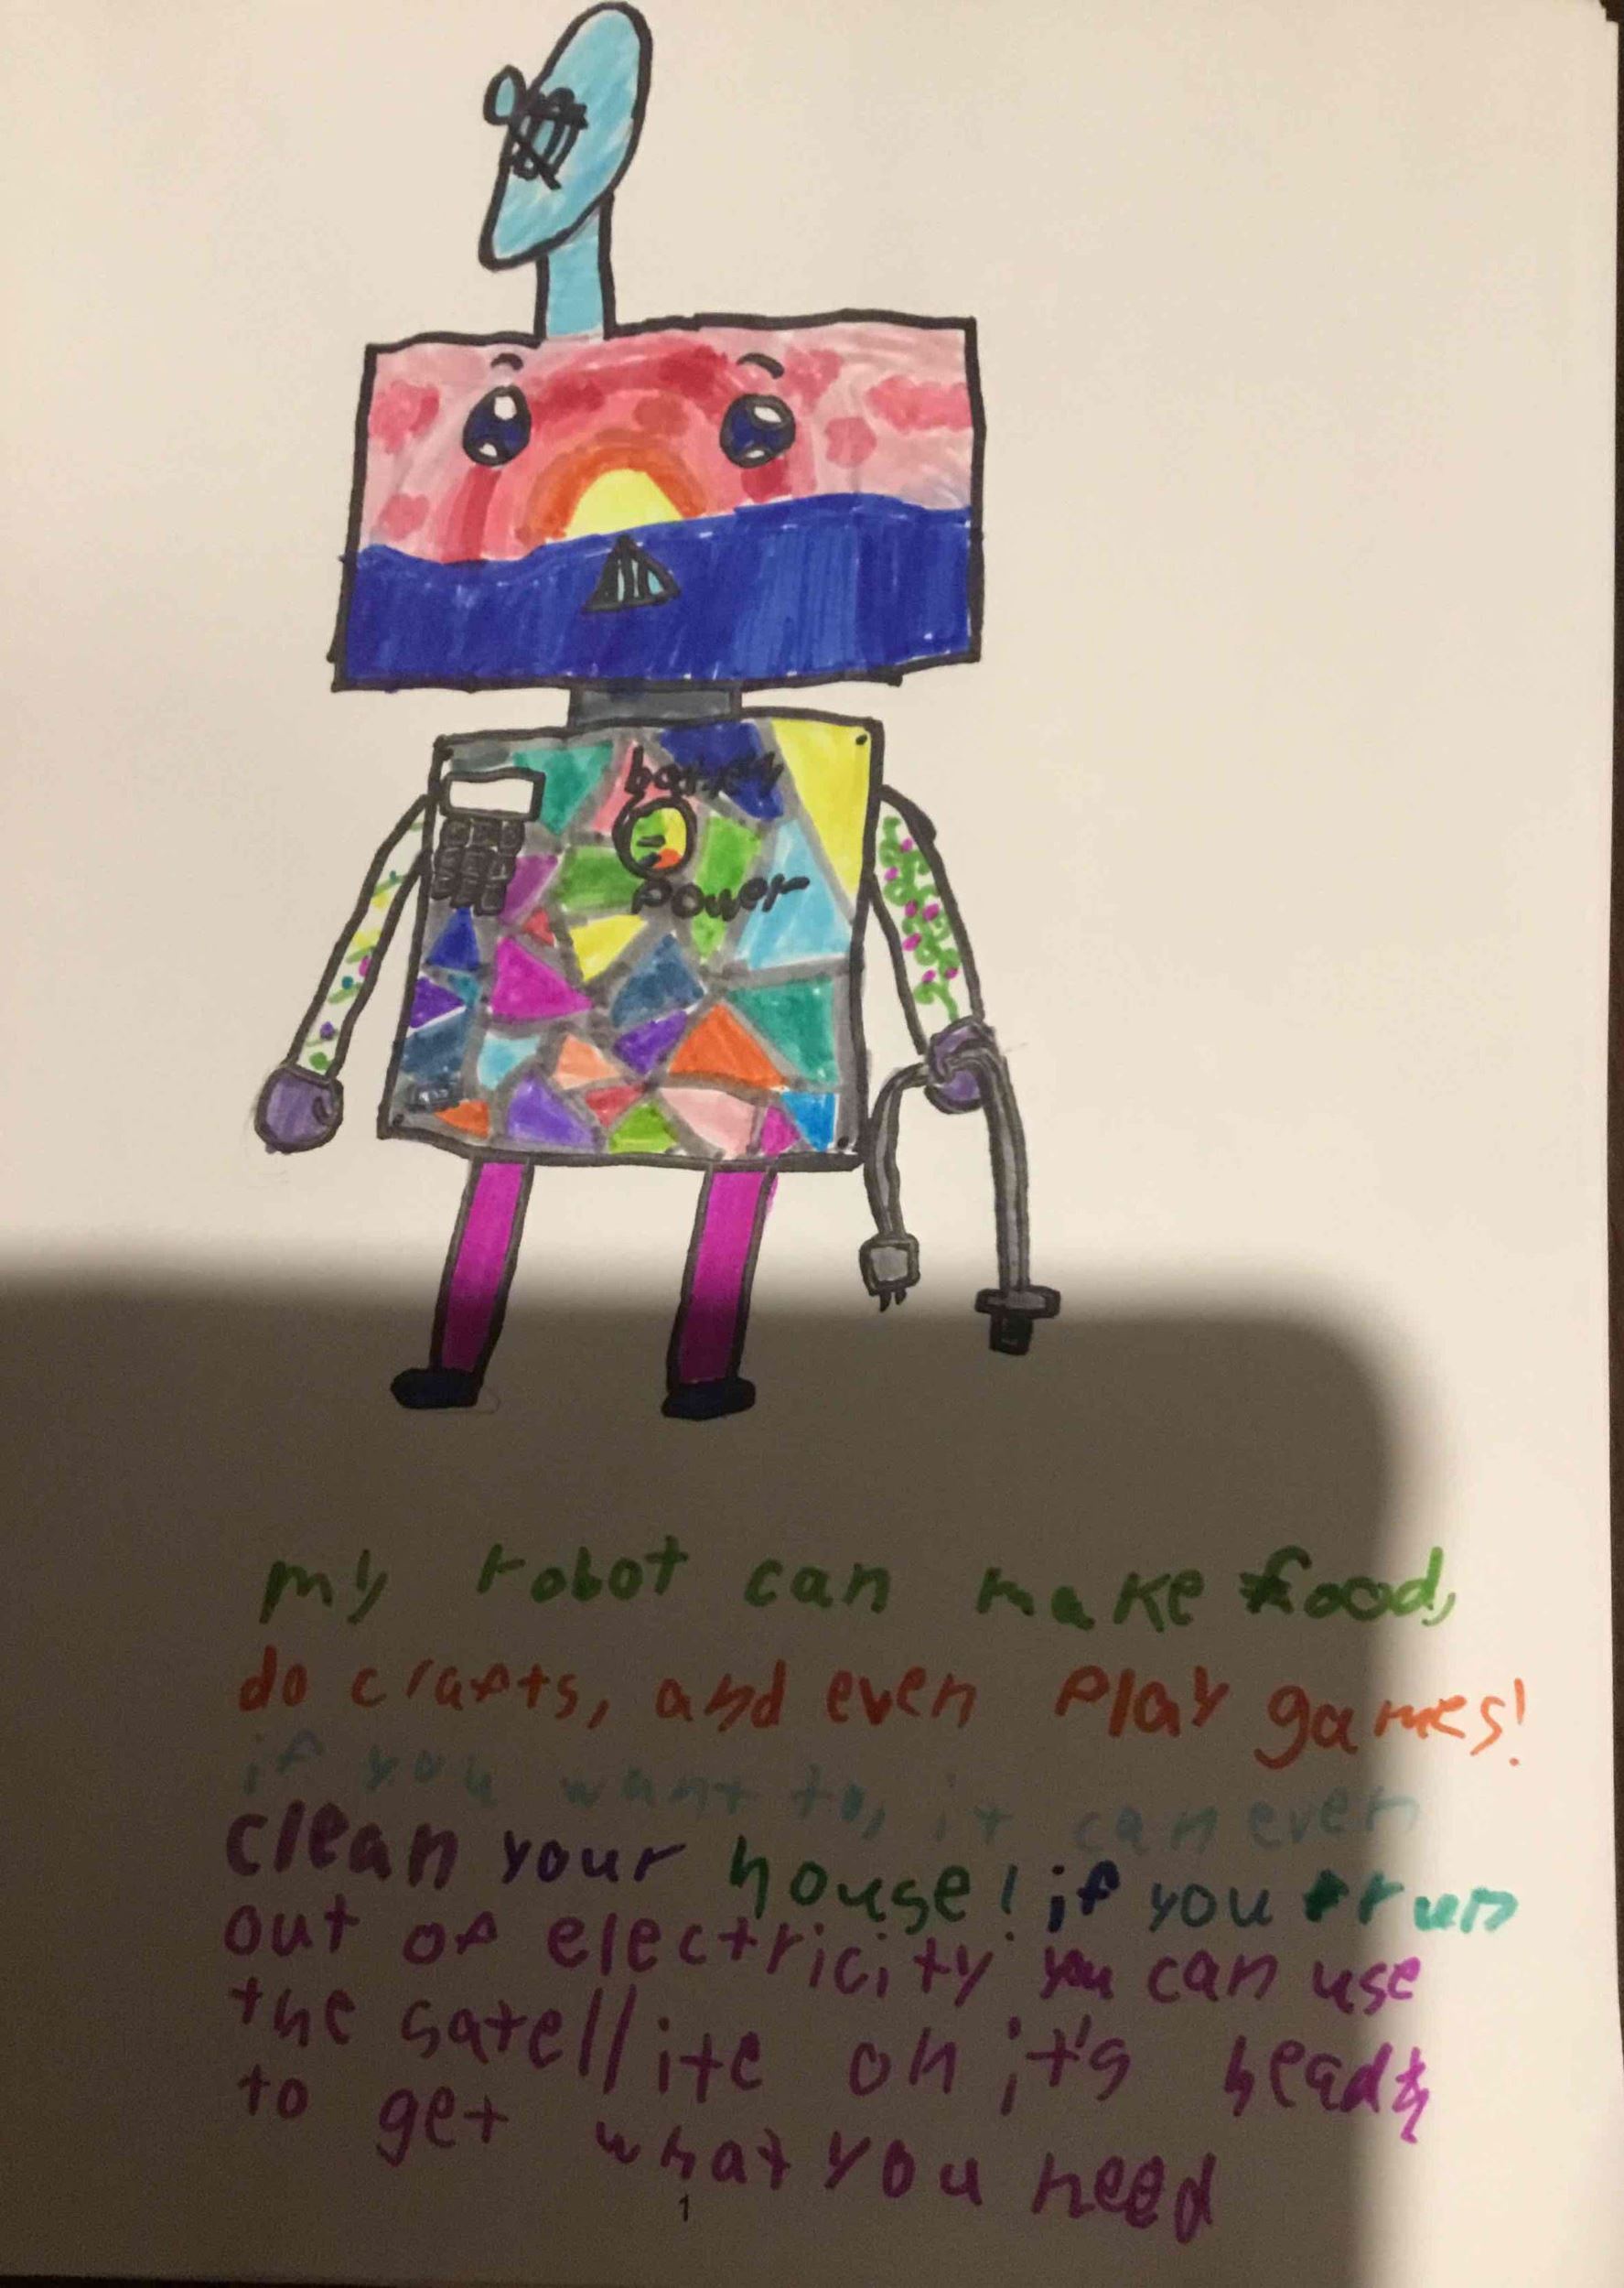 battery
power
my robot can make food,
do crafts, and even play games!
if you want to, it can even
clean your house! if you run
out of electricity you can use
the satellite on it's head
to get what you need
1